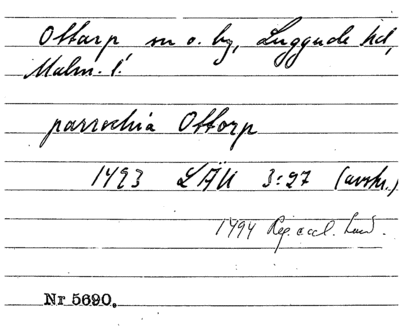 Ottarp, sn o. by, Luggude hd,
Malm. l.
parrochia Ottorp
1493 LÄU 3:27 (avskr.)
1494 Reg. eccl. Lund.
Nr 5690.